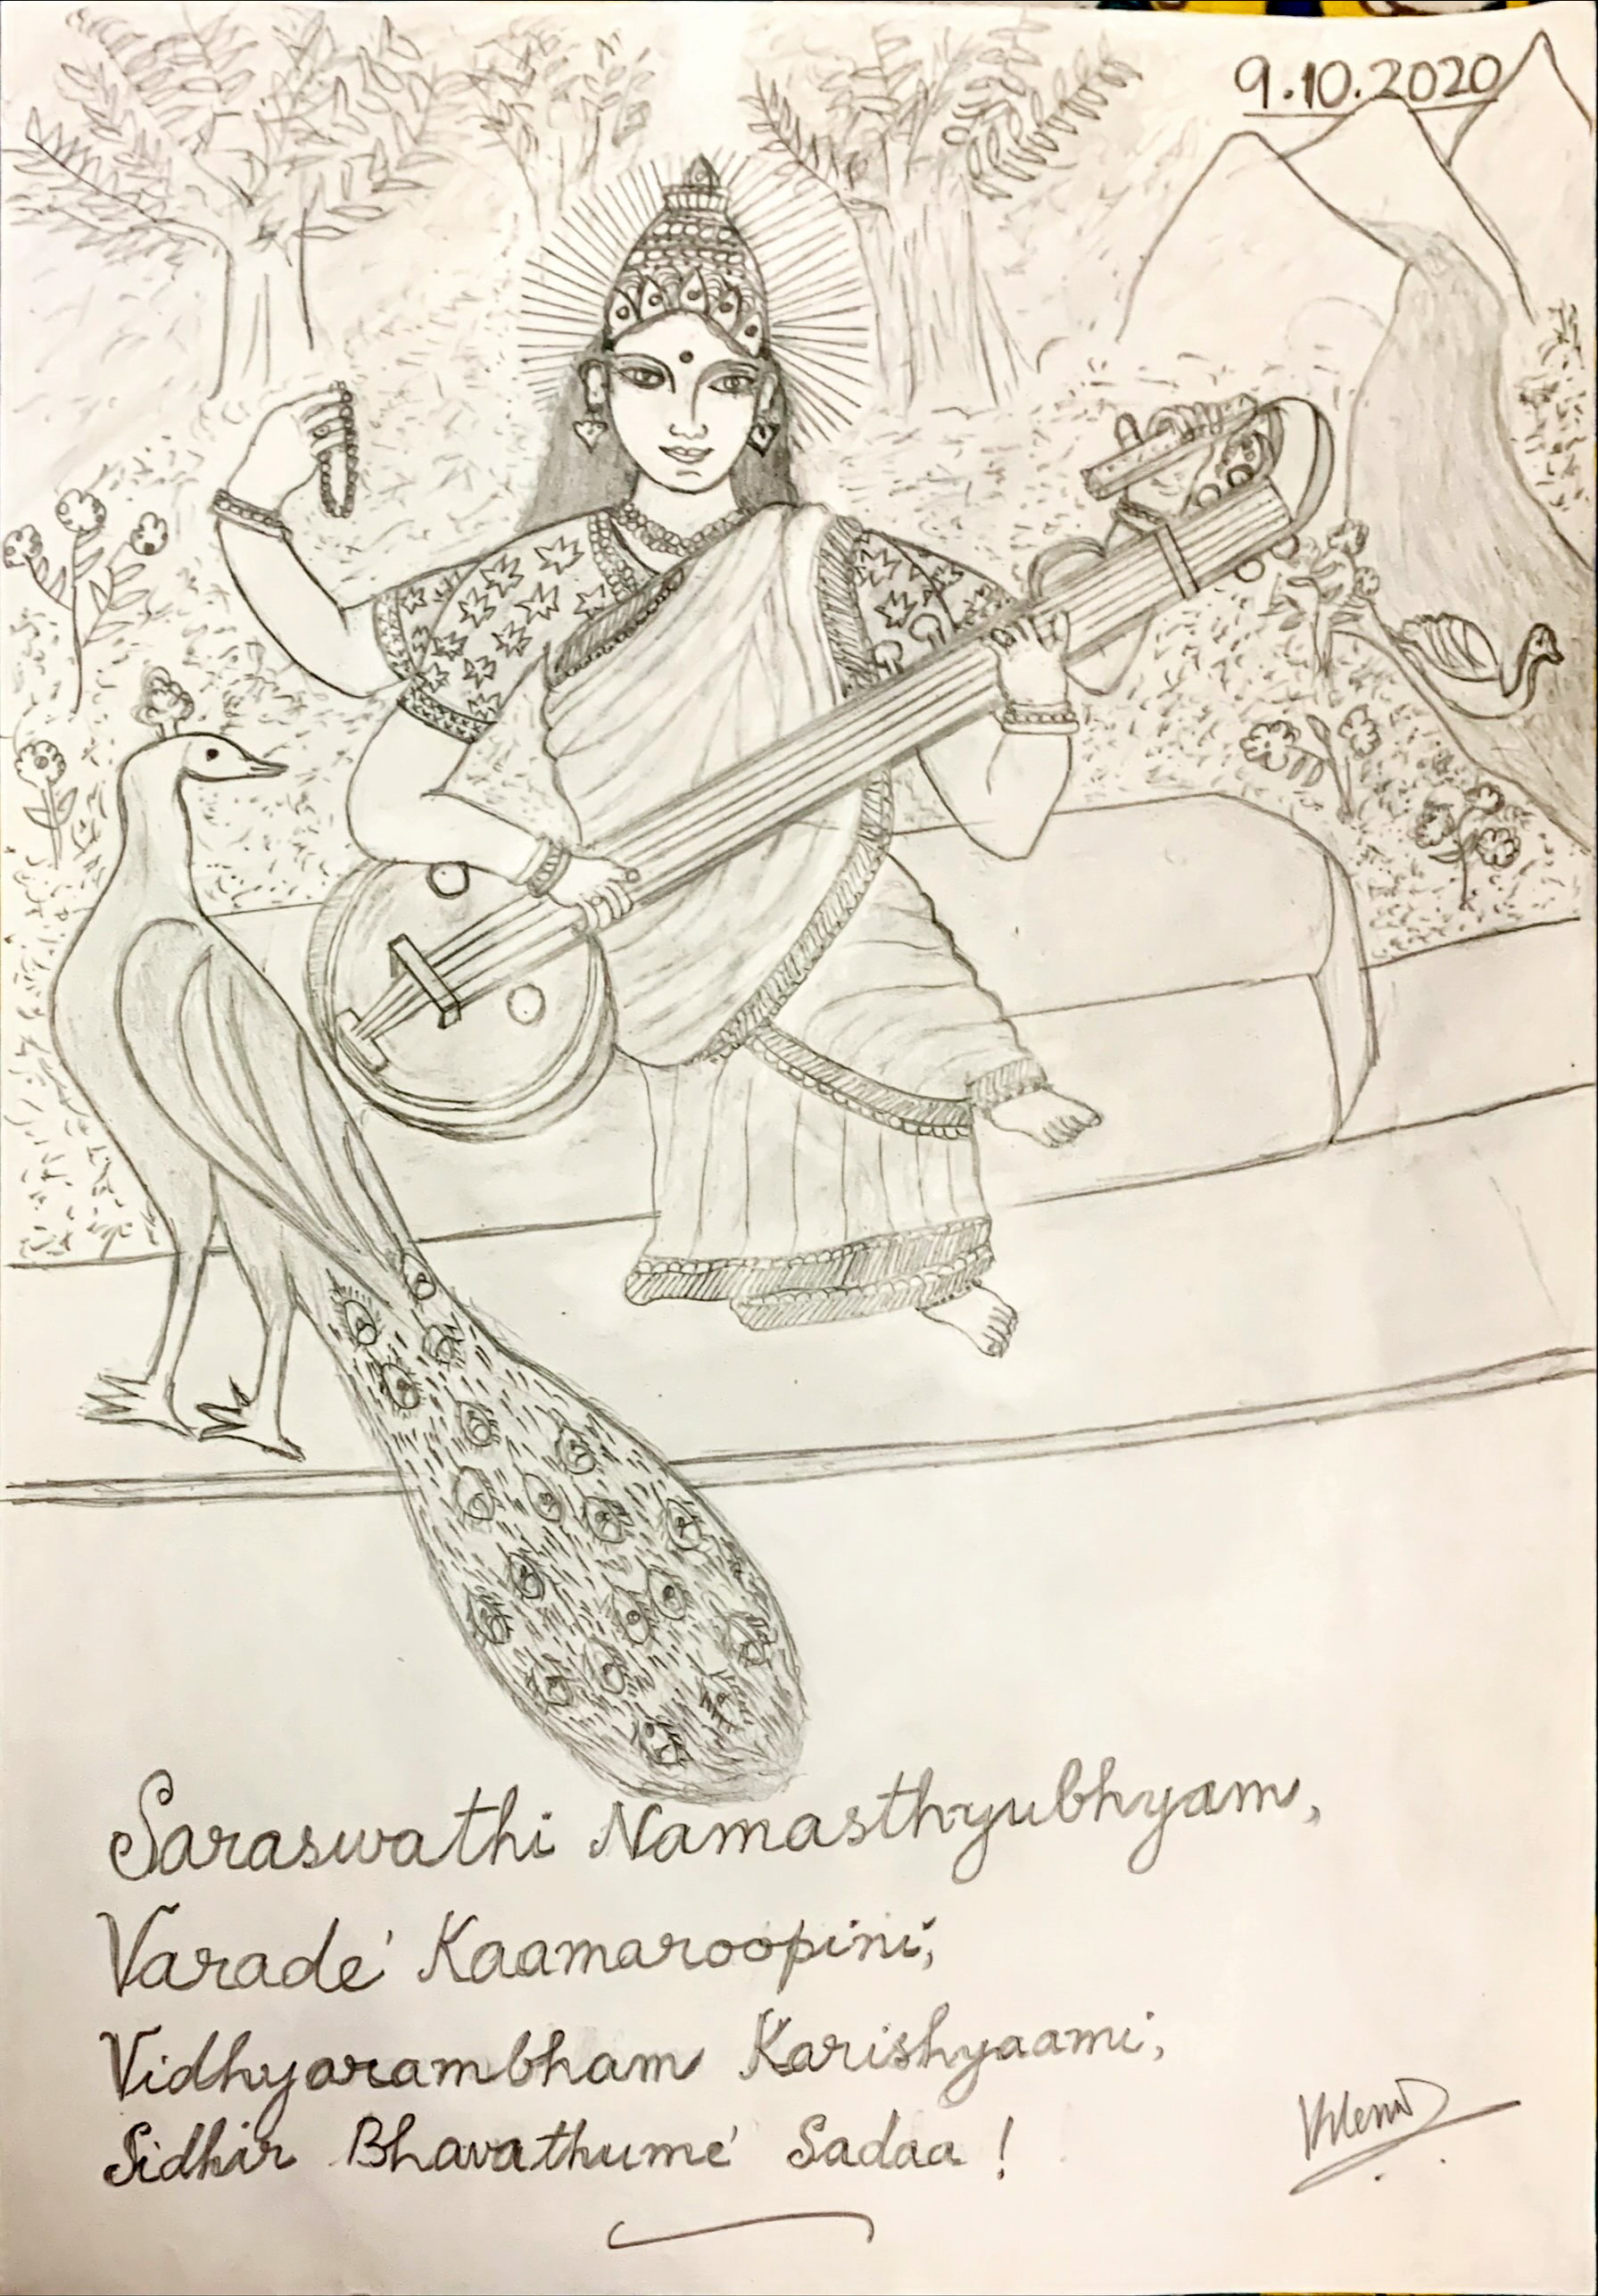 9.10.2020
Saraswathi Namasthyubhyam,
Varadé Kaamaroopini,
Vidhyarambham Karishyaami,
Sidhir Bhavathumé Sadaa !